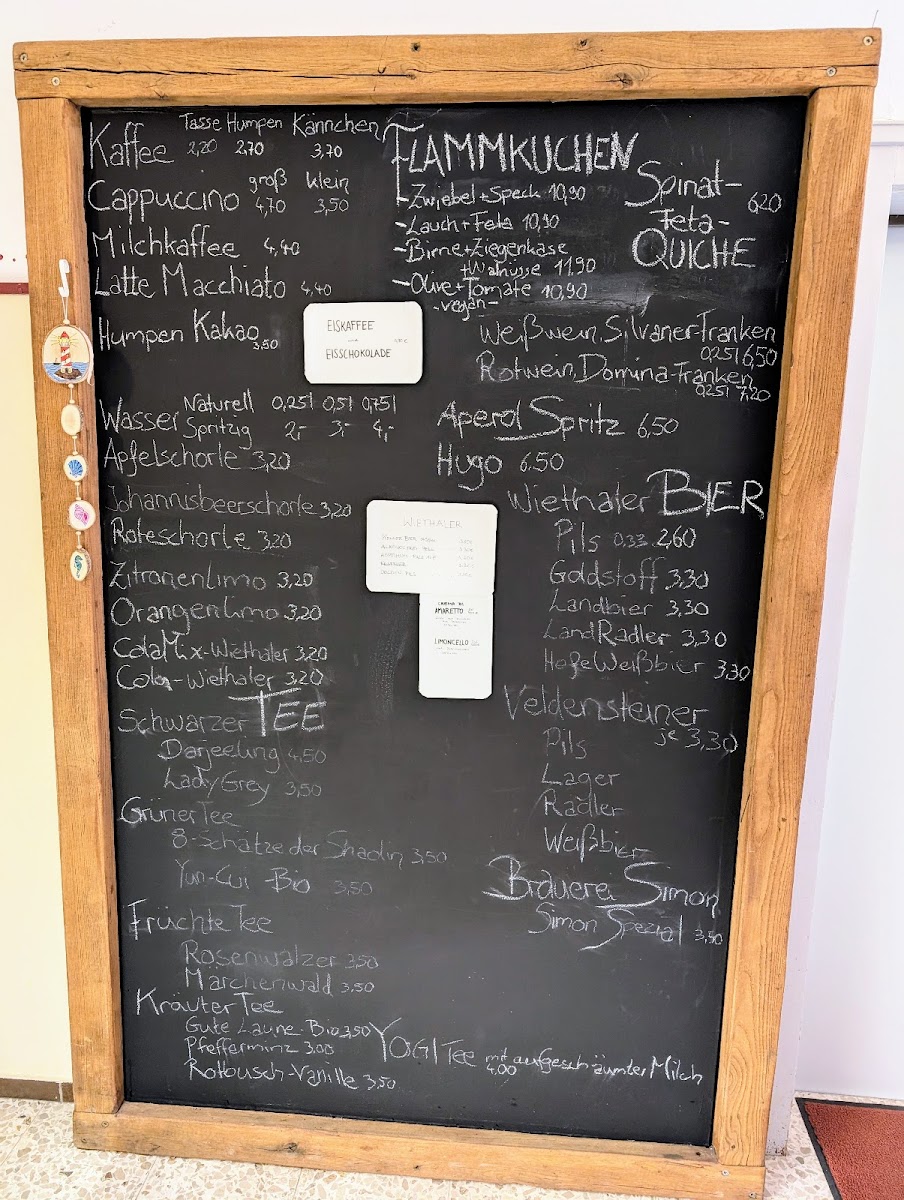 Tasse Humpen Kännchen
Kaffee 2,20 2,70 3,70
groß klein
Cappuccino 4,70 3,50
Milchkaffee 4,40
Latte Macchiato 4,40
Humpen Kakao 3,50
EISKAFFEE
EISSCHOKOLADE
Wasser Naturell 0,25l 0,5l 0,75l
Spritzig 2,- 3,- 4,-
Apfelschorle 3,20
Johannisbeerschorle 3,20
Roteschorle 3,20
Zitronenlimo 3,20
Orangenlimo 3,20
ColaMix-Wiethaler 3,20
Cola-Wiethaler 3,20
Schwarzer TEE
Darjeeling 4.50
Lady Grey 3,50
Grüner Tee
8-Schätze der Shaolin 3,50
Yun-Cui Bio 3,50
Früchte Tee
Rosenwalzer 3,50
Märchenwald 3,50
Kräuter Tee
Gute Laune-Bio 3,50
Pfefferminz 3,00
Rotbusch-Vanille 3,50
YOGI Tee mit aufgeschäumter Milch
4,00
FLAMMKUCHEN
-Zwiebel+Speck 10,90
-Lauch+Feta 10,90
-Birne+Ziegenkäse
+Walnüsse 11.90
-Olive+Tomate 10,90
-vegan-
Spinat-
Feta- 6,20
QUICHE
Weißwein, Silvaner-Franken
0,25l 6,50
Rotwein, Domina-Franken
0,25l 7,20
Aperol Spritz 6,50
Hugo 6,50
WIETHALER
AMARETTO
LIMONCELLO
Wiethaler BIER
Pils 0.33 2,60
Goldstoff 3,30
Landbier 3,30
LandRadler 3,30
HefeWeißbier 3,30
Veldensteiner
je 3,30
Pils
Lager
Radler
Weißbier
Brauerei Simon
Simon Spezial 3,50